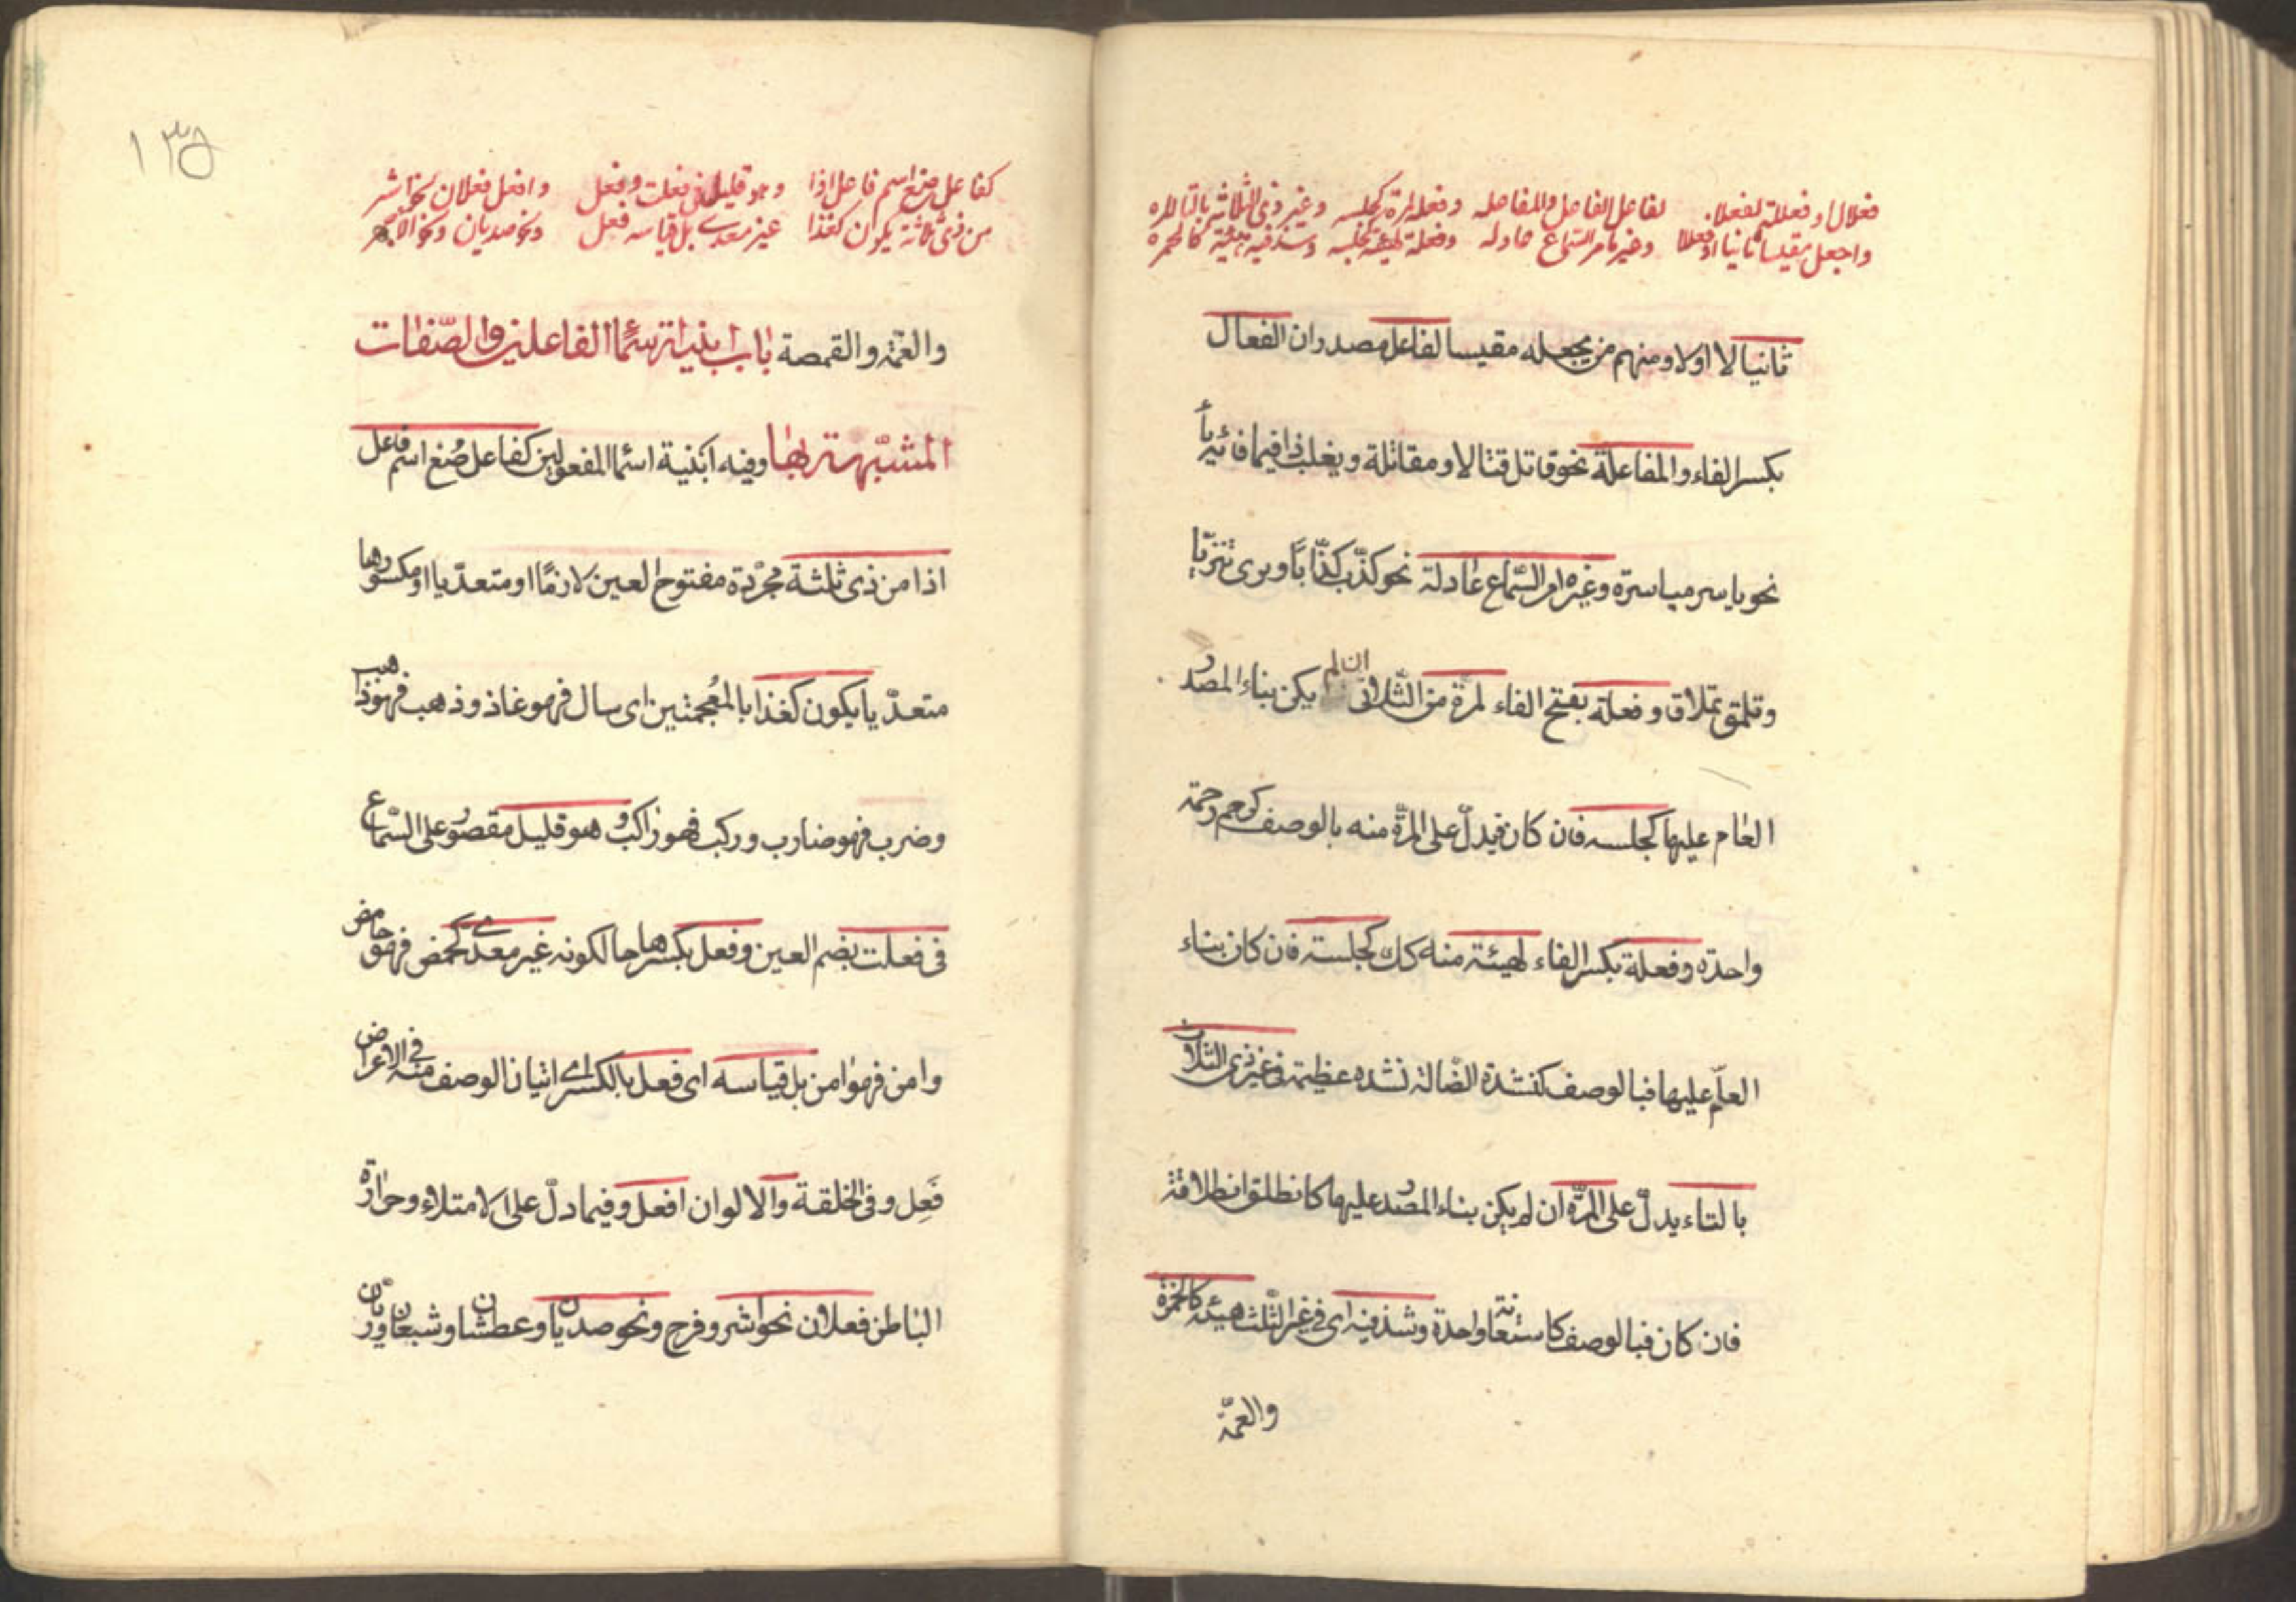 فعلال او فعللة لفعللا لفاعل الفاعل والمفاعله وفعلة لمرة كجلسه وغير ذى الثلاث بالتا المره
واجعل مقيسا ثانيا لا اولا وغير ما مر السماع عادله وفعلة لهيئة كجلسه وشذ فيه هيئة كالخمره
ثانيا لا اولا ومنهم من يجعله مقيسا لفاعل مصدران الفعال
بكسر الفاء والمفاعلة نحو قاتل قتالا ومقاتلة ويغلب ذا فيما فائه ياً
نحو ياسر مياسرة وغير ما مر السّماع عادلة نحو كذّب كذّابًا ونزى تنزيّا
وتملّق تملاق وفعلة بفتح الفاء لمرّة من الثّلاثى ان لم يكن بناء المصدر
العام عليها كجلسه فان كان فيدلّ على المرّة منه بالوصف كرحم رحمة
واحدة وفعلة بكسر الفاء لهيئة منه كك كجلسة فان كان بناء
العامّ عليها فبالوصف كنشدة الضالة نشده عظيمة فى غير ذى الثلاث
بالتاء يدلّ على المرّة ان لم يكن بناء المصدر عليها كانطلق انطلاقة
فان كان فبالوصف كاستعانة واحدة وشذ فيه اى فى غير الثّلث هيئة كالخمرة
والعمّة
١٣٥
كفاعل صغ اسم فاعل اذا وهو قليل فى فعلت وفعل وافعل فعلان نحو اشر
من ذى ثلاثة يكون كغذا غير معدى بل قياسه فعل ونحو صديان ونحو الاجهر
والعمّة والقمصة باب ابنية اسماء الفاعلين والصّفات
المشبّهة بها وفيه ابنية اسماء المفعولين كفاعل صُغ اسم فاعل
اذا من ذى ثلثة مجرّدة مفتوح العين لازمًا او متعدّيا او مكسورها
متعدّيا يكون كغذا بالمعجمتين اى سال فهو غاذ وذهب فهو ذاهب
وضرب فهو ضارب وركب فهو راكب وهو قليل مقصور على السّماع
فى فعلت بضم العين وفعل بكسرها حالكونه غير معدى كحمض فهو حامض
وامن فهو امن بل قياسه اى فعل بالكسر اى اتيان الوصف منه فى الاعراض
فَعِل وفى الخلقة والالوان افعل وفيما دلّ على الامتلاء وحرارة
الباطن فعلان نحو اشر وفرح ونحو صديان وعطشان وشبعان وريّان